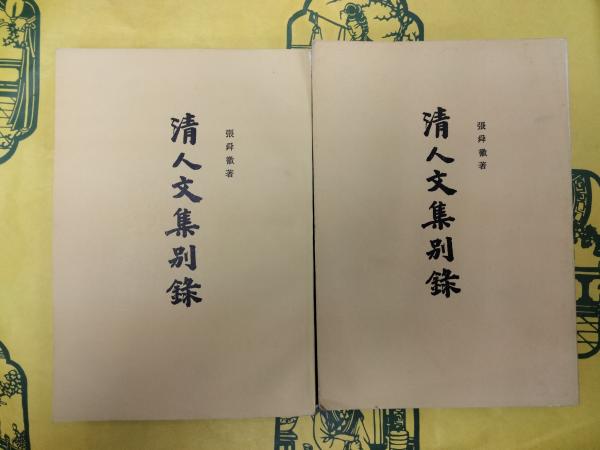 張舜徽著
清人文集別錄
張舜徽著
清人文集別錄